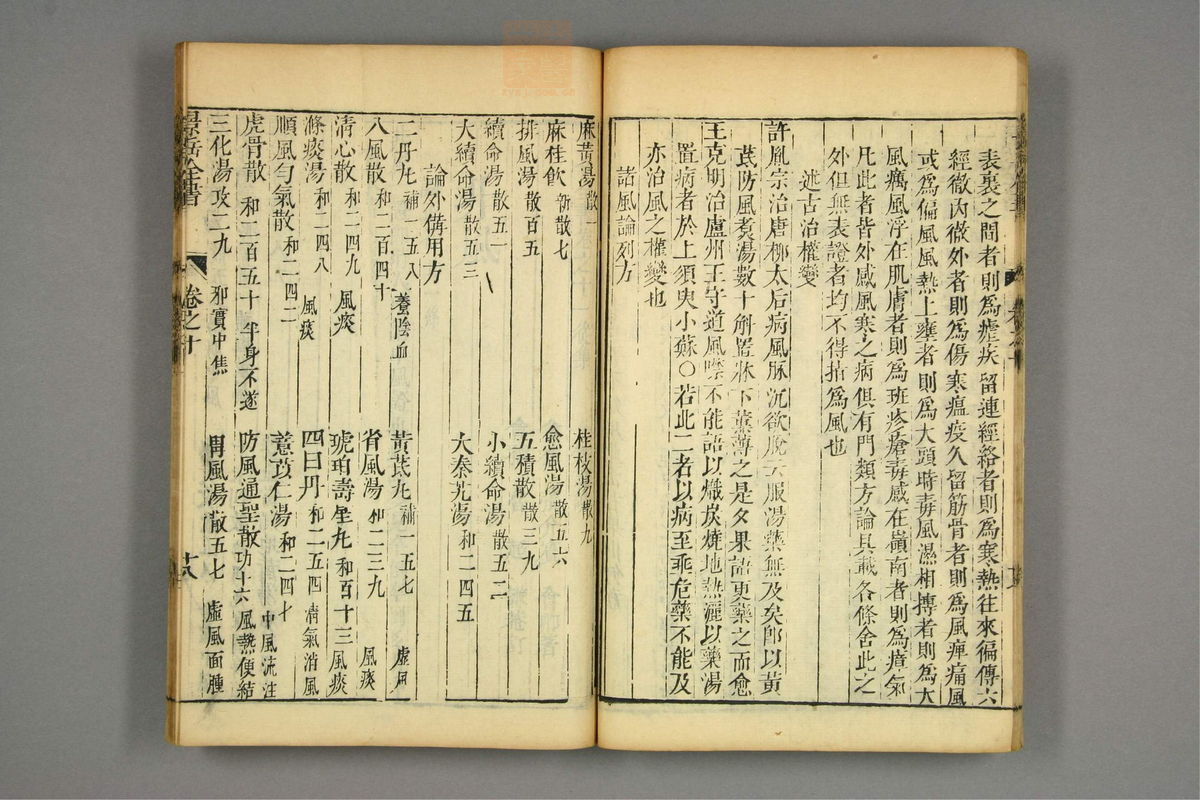 表裏之間者則爲瘧疾留連經絡者則爲寒熱往來徧傳六
經微內微外者則爲傷寒瘟疫久留筋骨者則爲風痺痛風
或爲偏風風熱上壅者則爲大頭時毒風濕相搏者則爲大
風癘風浮在肌膚者則爲班疹瘡毒感在嶺南者則爲瘴氣
凡此者皆外感風寒之病俱有門類方論具載各條舍此之
外但無表證者均不得指爲風也
述古治權變
許胤宗治唐柳太后病風脉沉欲脫口服湯藥無及矣卽以黃
芪防風煑湯數十斛置牀下薰蒸之是夕果語更藥之而愈
王克明治廬州王守道風噤不能語以熾炭燒地熱灑以藥湯
置病者於上須臾小蘇○若此二者以病至垂危藥不能及
亦治風之權變也
諸風論列方
麻黃湯散一 桂枝湯散九
麻桂飲新散七 愈風湯散五六
排風湯散百五 五積散散三九
續命湯散五一 小續命湯散五二
大續命湯散五三 大秦艽湯和二四五
論外備用方
二丹丸補一五八養陰血 黃芪丸補一五七
八風散和二百四十 省風湯和二三九風痰
清心散和二四九風痰 琥珀壽星丸和百十三風痰
滌痰湯和二四八風痰 四白丹和二五四清氣消風
順風勻氣散和二四二 薏苡仁湯和二四七中風流注
虎骨散和二百五十半身不遂 防風通聖散功十六風熱便結
三化湯攻二九邪實中焦 胃風湯散五七虛風面腫
景岳全書 卷之十 十八